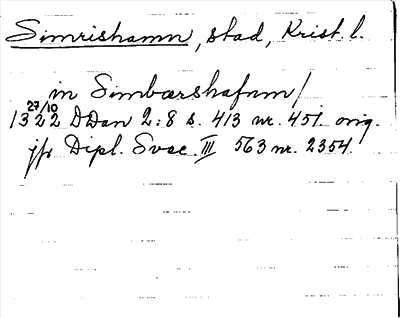 Simrishamn, stad, Krist. l.
in Simbærshafnm/
27/10
1322 DDan 2:8 s. 413 nr. 451 orig.
jfr Dipl. Svec. III 563 nr. 2354.